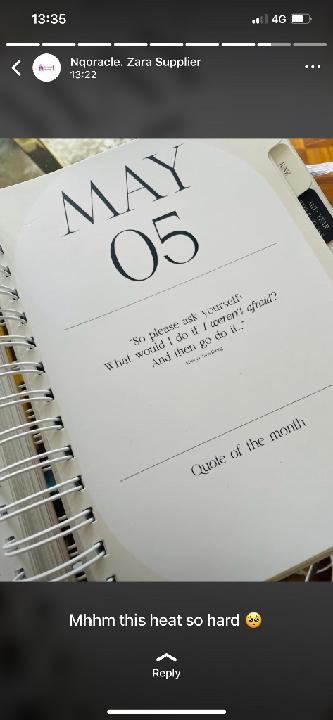 13:35
4G
Nqoracle. Zara Supplier
13:22
MAY
MAY
05
"So please ask yourself:
What would I do if I weren't afraid?
And then go do it.."
Quote of the month
Mhhm this heat so hard 🥺
Reply